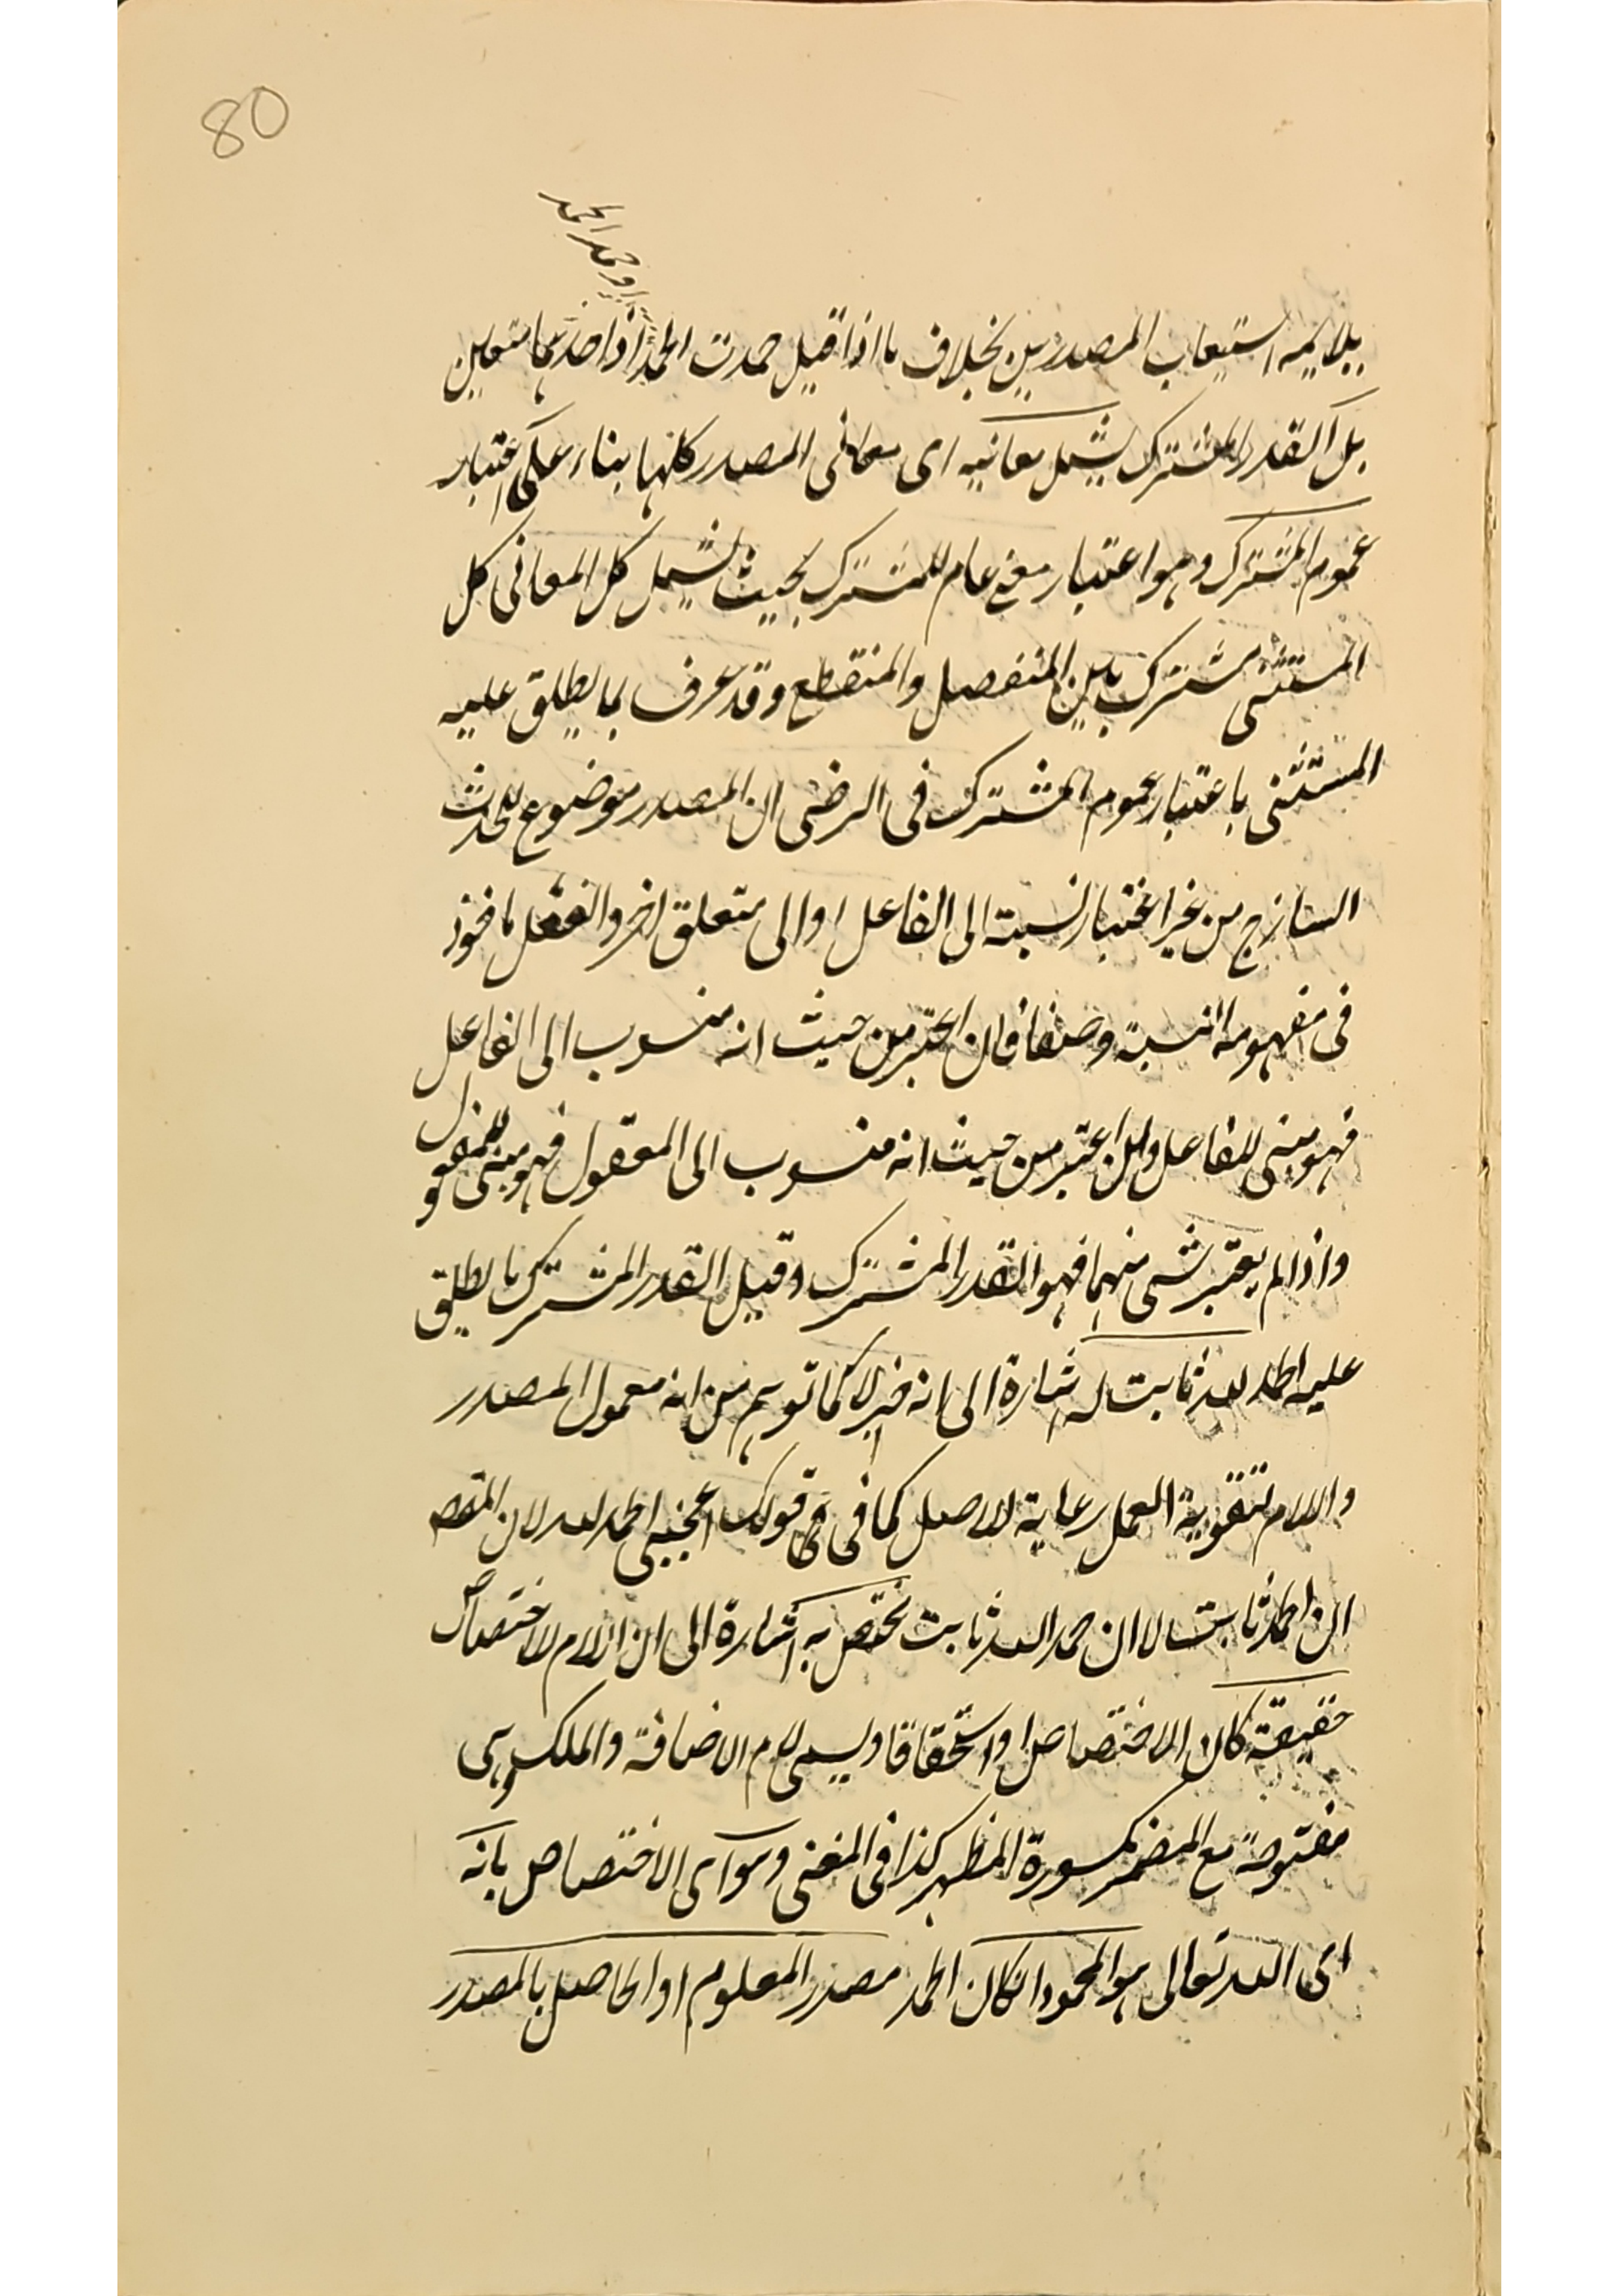 80
وحمد الحمد
يلايمه استيعاب المصدريين بخلاف ما اذا قيل حمدت الحمد اذ احدهما متعين
بل القدر المشترك يشمل معانيه اى معانى المصدر كلها بناء على اعتبار
عموم المشترك وهو اعتبار معنى عام للمشترك بحيث يشمل كل المعانى كل
المستثنى مشترك بين المنفصل والمنقطع وقد عرف بما يطلق عليه
المستثنى باعتبار عموم المشترك فى الرضى ان المصدر موضوع للحدث
الساذج من غير اعتبار نسبته الى الفاعل او الى متعلق اخر والفعل ماخوذ
فى مفهومه النسبة وضعا فان اعتبر من حيث انه منسوب الى الفاعل
فهو مبنى للفاعل وان اعتبر من حيث انه منسوب الى المفعول فهو مبنى للمفعول
واذا لم يعتبر شى منهما فهو القدر المشترك وقيل القدر المشترك ما يطلق
عليه الحمد لله ثابت له اشارة الى انه خبر لا كما توهم من انه معمول المصدر
واللام لتقوية العمل رعاية للاصل كما فى قولك اعجبنى الحمد لله لان المقصـ
ان الحمد ثابت له لا ان حمد الله ثابت مختص به اشارة الى ان اللام للاختصاص
حقيقة كان الاختصاص او استحقاقا ويسمى لام الاضافة والملك وهى
مفتوحة مع المضمر مكسورة المظهر كذا فى المغنى وهو اى الاختصاص بانه
اى الله تعالى هو المحمود ان كان الحمد مصدر المعلوم او الحاصل بالمصدر